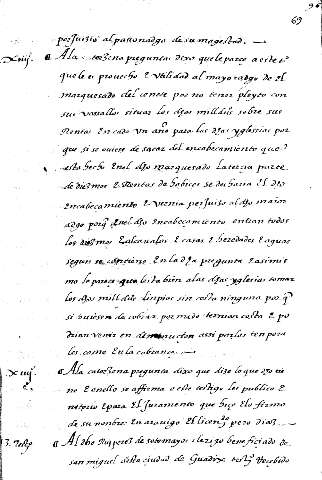 69
perjuizio al patronadgo de su magestad.
xiij. A la trezena pregunta dixo que le pareçe a este tº
que le es provecho e utilidad al mayoradgo de el
marquesado del cenete por no tener pleyto con
sus vasallos situar los dhos mill dus sobre sus
Rentas en cada un año para las dhas yglesias por
que si se oviese de sacar del encabeçamiento que
esta hecho en el dho marquesado la terçia parte
de diezmos e Rentas de habizes se desharia el dho
encabeçamiento e vernia perjuizio al dho maior
adgo porq en el dho encabeçamiento entran todos
los diezmos e alcavalas e casas e heredades e aguas
segun se contiene en la dha pregunta e asimis
mo le pareçe que les esta bien a las dhas yglesias tomar
los dhos mill dus linpios sin costa ninguna porq
si huviesen de cobrar por menudo ternian costa e po
drian venir en deminuçion assi por los tenpora
les como en la cobrança.
xiiijº A la catorzena pregunta dixo que dize lo que dho tie
ne e en ello se affirma e este testigo les publico e
notorio e para el juramento que hizo e lo firmo
de su nonbre en aravigo el licençº pero diaz
3. testigº Al dho de sotomayor clerigo beneficiado de
san miguel desta ciudad de Guadix testigº Reçebido